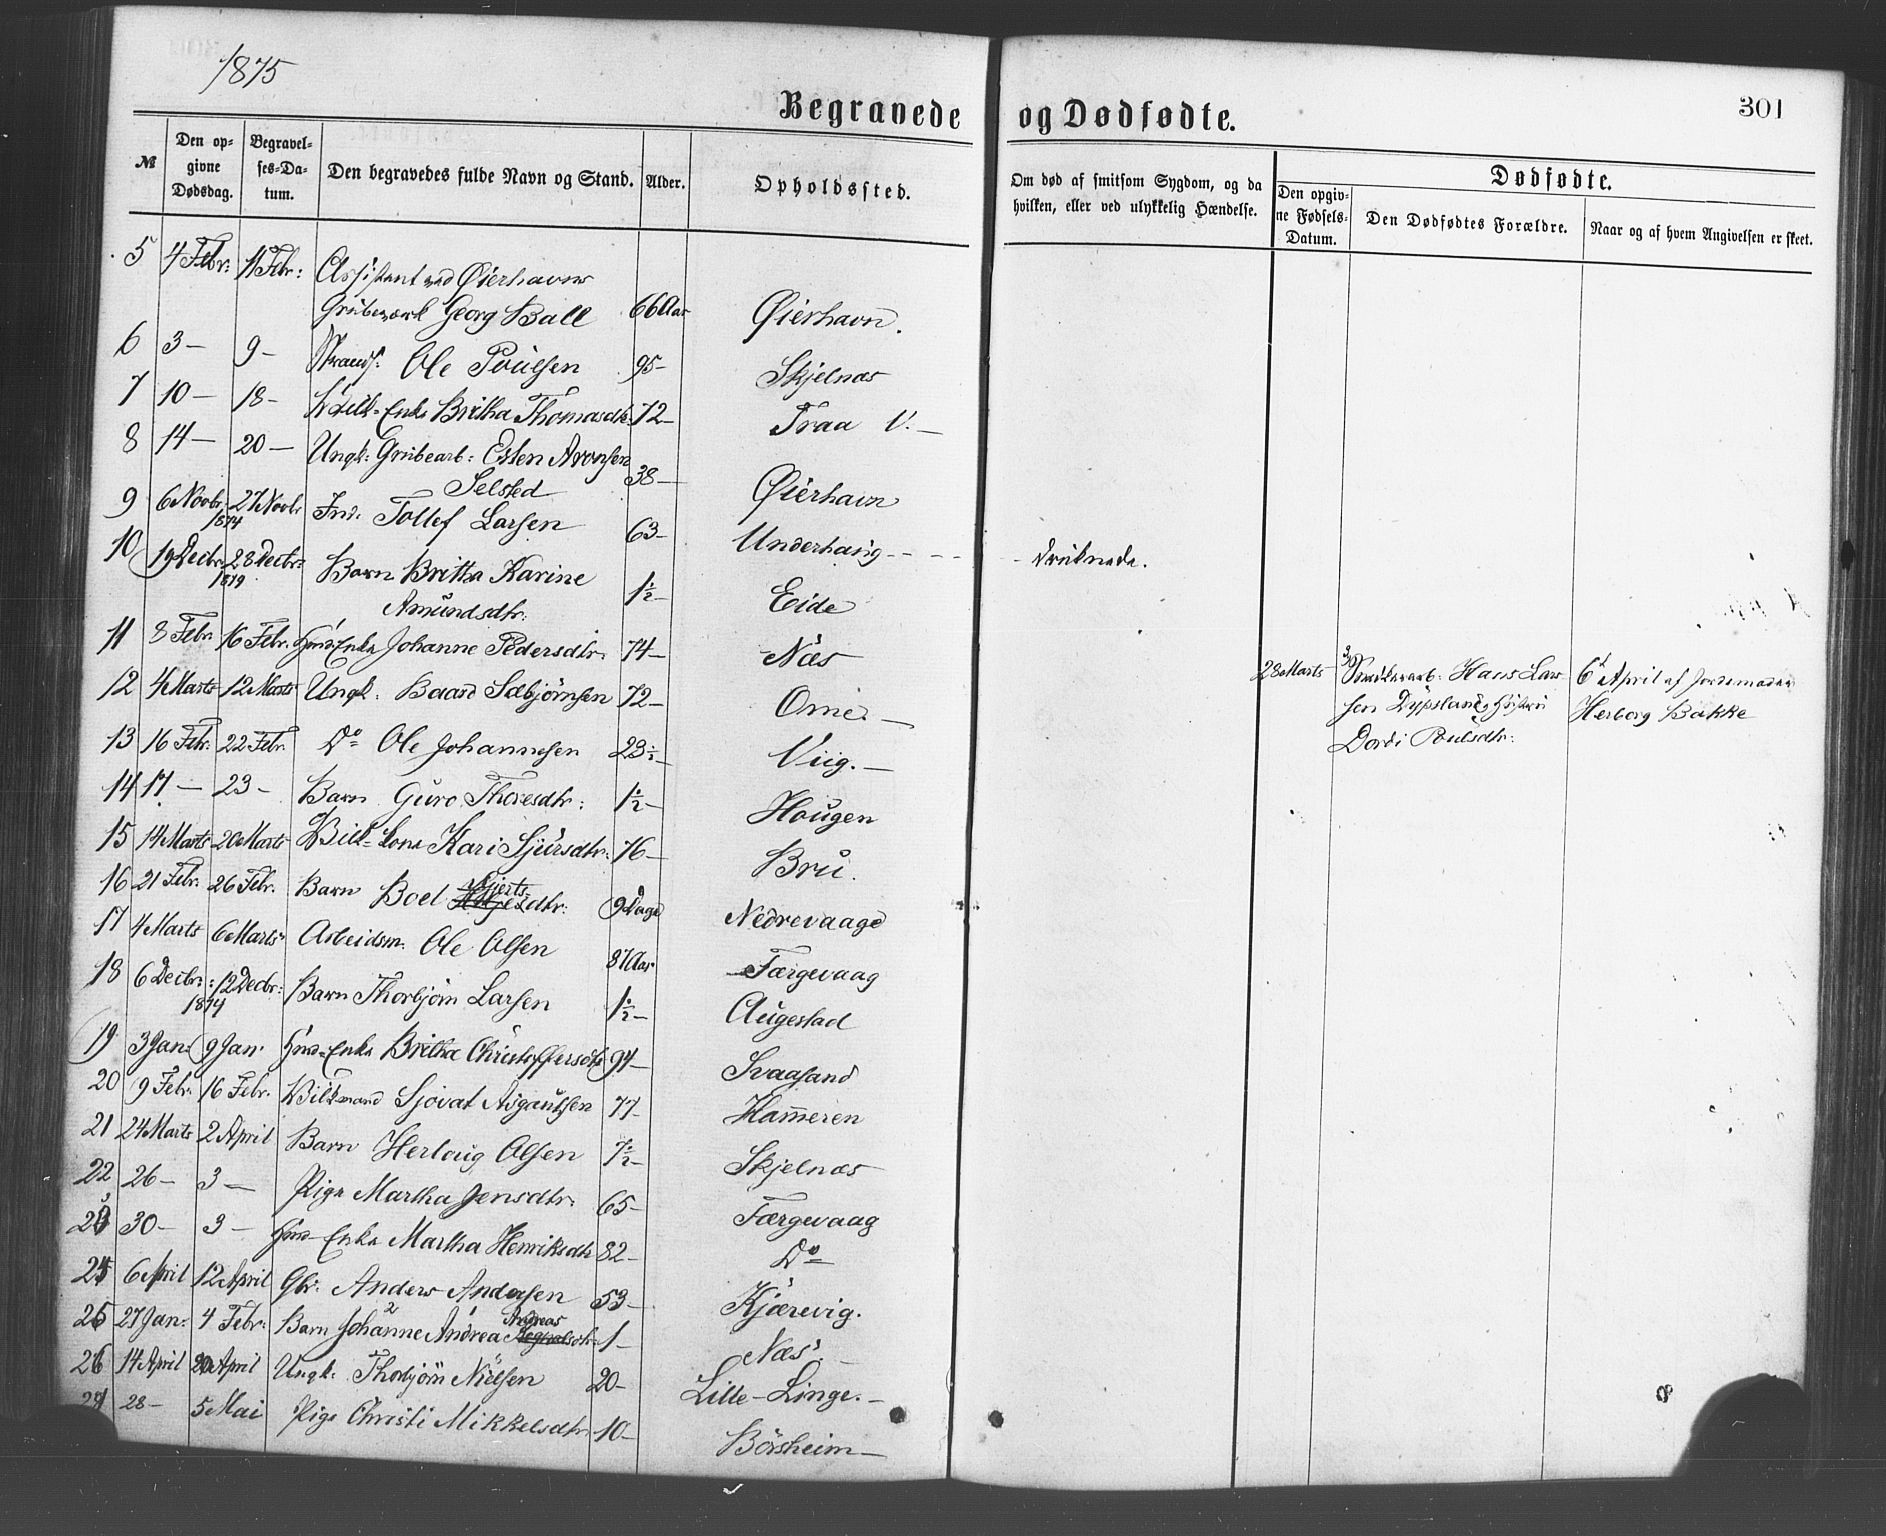 1875
301
Begravede og Dødfødte.
№ Den opgivne Dødsdag. Begravelses-Datum. Den begravedes fulde Navn og Stand. Alder. Opholdssted. Om død af smitsom Sygdom, og da hvilken, eller ved ulykkelig Hændelse. Dødfødte.
Den opgivne Fødsels-Datum. Den Dødfødtes Forældre. Naar og af hvem Angivelsen er skeet.
5 4 Febr: 11 Febr: Assistent ved Øierhavns
Grubeværk Georg Ball 66 Aar Øierhavn.
6 3 - 9 - Ole Poulsen 95 - Skjelnæs
7 10 - 18 - Enke Britha Thomasdtr. 72 - Traa V. -
8 14 - 20 - Ungk: Grubearb: Esten Aronsen
Selsted 38 - Øierhavn
9 6 Novbr. 27 Novbr 1874 Ind. Tollef Larsen 63 - Underhaug - - - - druknede.
10 19 Decbr. 28 Decbr: Barn Britha Karine
Amundsdtr: 1½ - Eide
11 8 Febr. 16 Febr. Enke Johanne Pedersdtr. 74 - Næs
12 4 Marts 12 Marts Ungk. Baard Sæbjørnsen 72 - Ome. -
28 Marts Hans Larsen Dypsland og Hustru
Dordi Poulsdtr: 6 April af Jordemoder
Herborg Bakke
13 16 Febr. 22 Febr. Do Ole Johannesen 23½ - Viig. -
14 17 - 23 - Barn Guro Thoresdtr: 1½ - Hougen
15 14 Marts 20 Marts Kari Sjursdtr: 76 - Bru.
16 21 Febr. 26 Febr. Barn Boel Sjurtsdtr: 9 Dage Nedrevaage
17 4 Marts 6 Marts Arbeidsm: Ole Olsen 87 Aar Færgevaag
18 6 Decbr: 12 Decbr: 1874 Barn Thorbjørn Larsen 1½ - Augestad
19 3 Jan. 9 Jan. Enke Britha Christoffersdtr 94 - Svaasand
20 9 Febr. 16 Febr. Sjovat Asgautsen 77 - Hammeren
21 24 Marts 2 April Barn Herloug Olsen 7½ - Skjelnæs
22 26 - 3 - Pige Martha Jensdtr: 65 - Færgevaag
23 30 - 3 - Enke Martha Henriksdtr 82 - Do
24 6 April 12 April Gbr. Anders Andersen 53 - Kjærevig.
25 27 Jan: 4 Febr: Barn Johanne Andrea Andreas dtr. 1 - Næs. -
26 14 April 20 April Ungk: Thorbjørn Nielsen 20 - Lille-Linge. -
27 28 - 5 Mai Pige Christi Mikkelsdtr 10 - Börsheim -